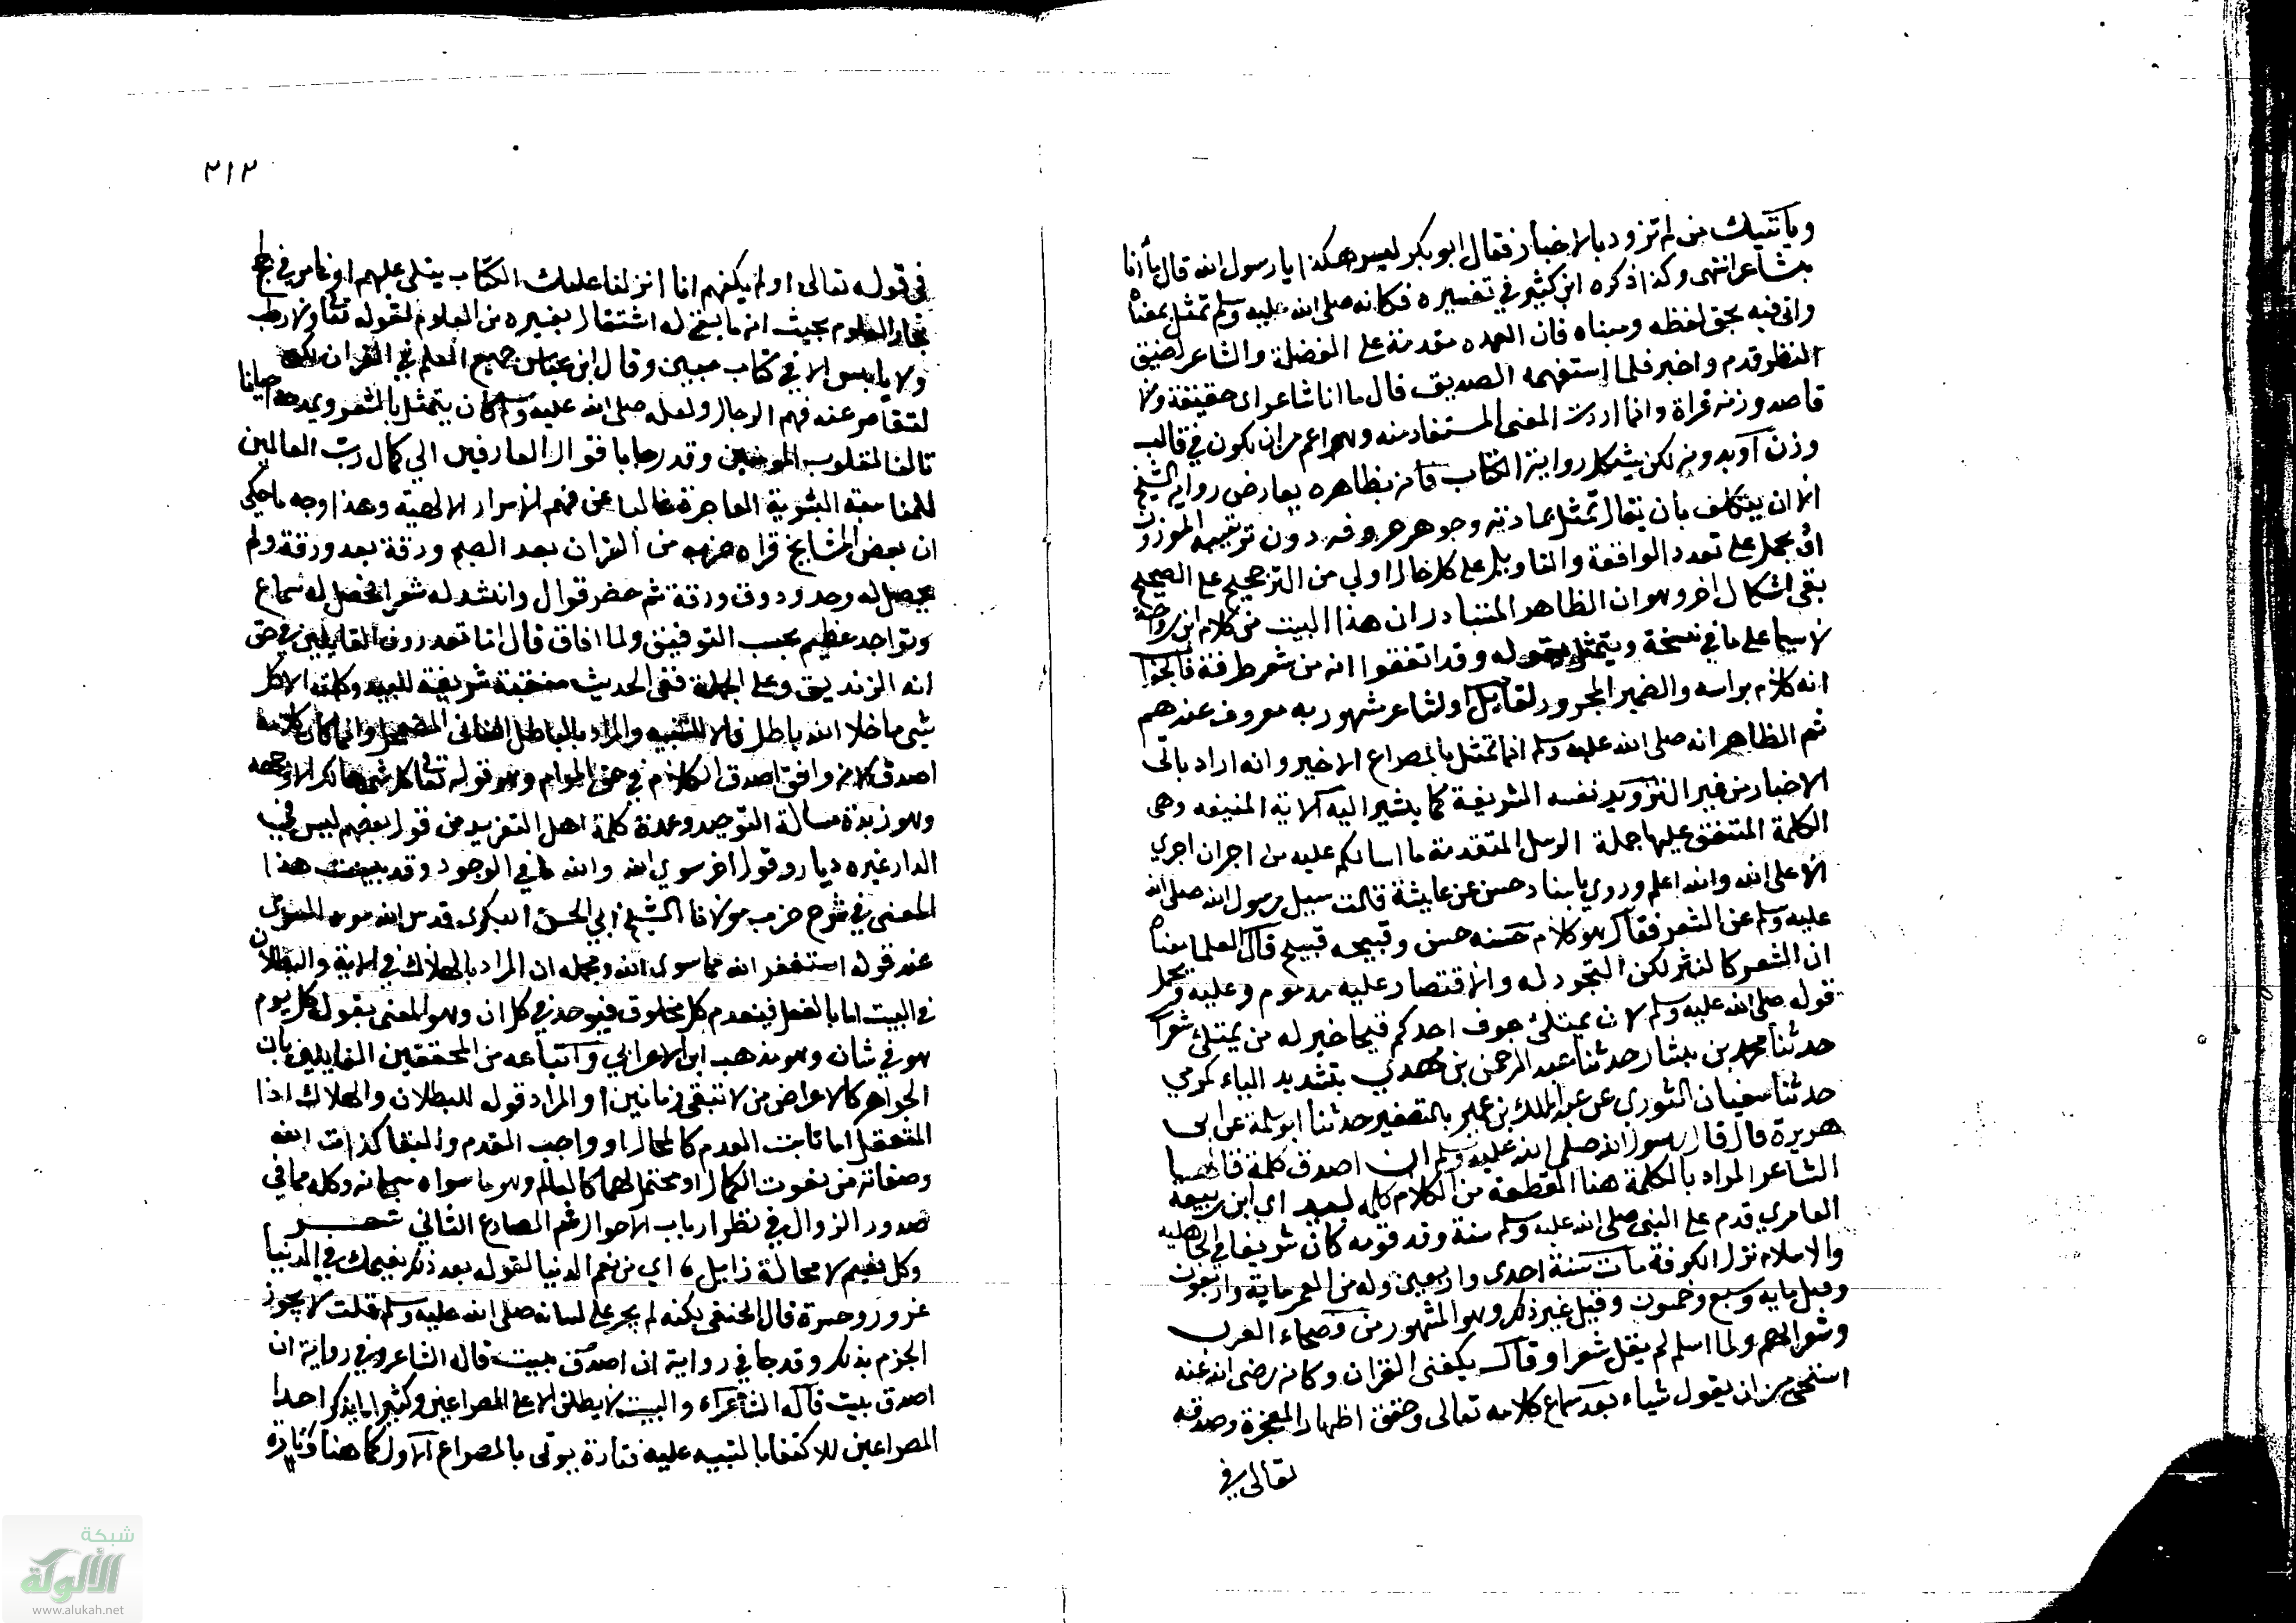 ويأتيك من لم تزود بالاخبار فقال ابو بكر ليس هكذا يا رسول الله قال ما أنا
بشاعر انتهى وكذا ذكره ابن كثير في تفسيره فكانه صلى الله عليه وسلم تمثل بمعناه
واتى فيه بحق لفظه ومبناه فان العمدة مقدمة على الفضلة والشاعر لضيق
النظم قدم واخر فلما استفهمه الصديق قال ما انا شاعر اى حقيقة ولا
قاصد وزنه قراة وانما اردت المعنى المستفاد منه وهو اعم من ان يكون في قالب
وزن أو بدونه لكن يشكل رواية الكتاب فانه بظاهره يعارض رواية الشيخ
الا ان يتكلف بان يقال تمثل بمادته وجوهر حروفه دون ترتيبه الموزون
او يحمل على تعدد الواقعة والتاويل على كل حال اولى من الترجيح على الصحيح
بقى اشكال اخر وهو ان الظاهر المتبادر ان هذا البيت من كلام ابن رواحة
لا سيما على ما في نسخة ويتمثل بقوله وقد اتفقوا انه من شعر طرفة فالجواب
انه كلام براسه والضمير المجرور لقايل او لشاعر مشهور به معروف عندهم
ثم الظاهر انه صلى الله عليه وسلم انما تمثل بالمصراع الاخير وانه اراد باتى
الاخبار من غير التزويد نفسه الشريفة كما يشير اليه الاية المنيفه وهى
الكلمة المتفق عليها جملة الرسل المتقدمة ما اسالكم عليه من اجر ان اجري
الا على الله والله اعلم وروي باسناد حسن عن عايشة قالت سيل رسول الله صلى الله
عليه وسلم عن الشعر فقال هو كلام حسنه حسن وقبيحه قبيح قال العلما معناه
ان الشعر كالنثر لكن التجرد له والاقتصار عليه مذموم وعليه يحمل
قوله صلى الله عليه وسلم لان يمتلئ جوف احدكم قيحا خير له من يمتلئ شعرا
حدثنا محمد بن بشار حدثنا عبد الرحمن بن مهدي بتشديد الياء كمرمي
حدثنا سفيان الثوري عن عبد الملك بن عمير بالتصغير حدثنا ابو سلمة عن ابى
هريرة قال قال رسول الله صلى الله عليه وسلم ان اصدق كلمة قالها
الشاعر المراد بالكلمة هنا القطعة من الكلام كلمة لبيد اي ابن ربيعة
العامري قدم على النبى صلى الله عليه وسلم سنة وفد قومه كان شريفا في الجاهلية
والاسلام نزل الكوفة مات سنة احدى واربعين وله من العمر ماية واربعون
وقيل مايه وسبع وخمسون وقيل غير ذلك وهو المشهور من فصحاء العرب
وشعرائهم ولما اسلم لم يقل شعرا وقال يكفنى القران وكانه رضى الله عنه
استحى من ان يقول شياء بعد سماع كلامه تعالى وحقق اظهار المعجزة وصدقه
تعالى في
٢١٢
في قوله تعالى او لم يكفهم انا انزلنا عليك الكتاب يتلى عليهم او غامر في لجج
بحار العلوم بحيث انه ما بقى له اشتغال بغيره من العلوم لقوله تعالى ولا رطب
ولا يابس الا في كتاب مبين وقال ابن عباس جميع العلم في القران لكن
لتقاصر عنه فهم الرجال ولعله صلى الله عليه وسلم كان يتمثل بالشعر ويمدحه احيانا
تالفا لقلوب المومنين وقدرحا باقوال العارفين الي كمال رب العالمين
للمناسبة البشرية العاجزة غالبا عن فهم الاسرار الالهية وهذا وجه ما حكى
ان بعض المشايخ قراه حزبه من القران بعد الصبح ورقة بعد ورقة ولم
يحصل له وجد وذوق ورقة ثم حضر قوال وانشد له شعرا فحصل له سماع
وتواجد عظيم بحسب التوفيق ولما افاق قال اما تعذرون القايلين في حق
انه الزنديق وعلى الجملة ففى الحديث منقبة شريفة للبيد وكلمته الا كل
شى ما خلا الله باطل فالا للتنبيه والمراد بالباطل الفانى المضمحل وانما كان كلامه
اصدق لانه وافق اصدق الكلام في حق المرام وهو قوله تعالى كل شى هالك الا وجهه
وهو زبدة مسالة التوحيد وعمدة كلمة اهل التفريد من قول بعضهم ليس في
الدار غيره ديار وقول اخر سوى الله والله ما في الوجود وقد بينت هذا
المعنى في شرح حزب مولانا الشيخ ابي الحسن البكرى قدس الله سره السرى
عند قوله استغفر الله مما سوى الله ومجمله ان المراد بالهلاك في الاية والبطلان
في البيت اما بالفعل فينعدم كل مخلوق فيوجد في كل ان وهو المعنى بقوله كل يوم
هو في شان وهو مذهب ابن الاعرابي واتباعه من المحققين القايلين بان
الجواهر كالاعراض من لا تبقى زمانين او المراد قوله للبطلان والهلاك اذا
المتعقل اما ثابت العدم كالمحال او واجب القدم والبقا كذات الله
وصفاته من نعوت الكمال او محتمل لهما كالعالم وهو ما سواه سبحانه وكله مما في
صدور الزوال في نظر ارباب الاحوال ثم المصارع الثاني شعر
وكل نعيم لا محالة زايل، اي من نعيم الدنيا لقوله بعد ذلك نعيمك في الدنيا
غرور وحسرة قال الحنفى يكنه لم يجر على لسانه صلى الله عليه وسلم قلت لا يجوز
الجزم بذلك وقد جا في رواية ان اصدق بيت قاله الشاعر وفي رواية ان
اصدق بيت قاله الشعراء والبيت لا يطلق الا على المصراعين وكثيرا ما يذكر احدا
المصراعين للاكتفا بالتنبيه عليه فتارة يوتى بالمصراع الاول كما هنا وتارة
شبكة
الألوكة
www.alukah.net